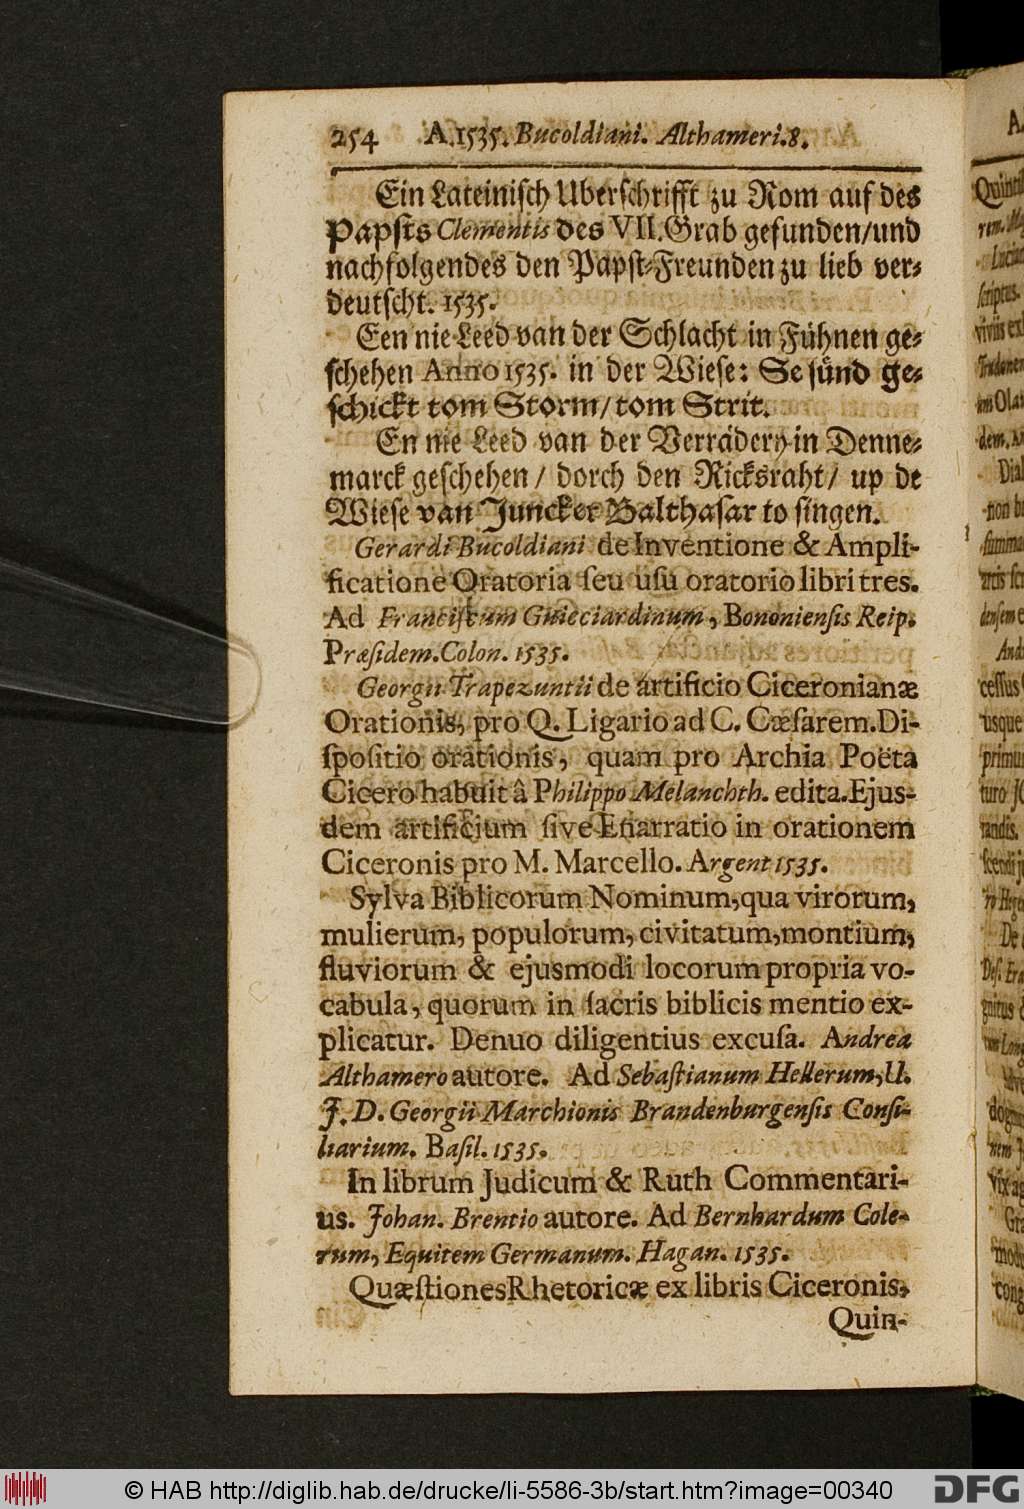 254 A. 1535. Bucoldiani. Althameri. 8.
Ein Lateinisch Uberschrifft zu Rom auf des
Papsts Clementis des VII. Grab gefunden/und
nachfolgendes den Papst-Freunden zu lieb ver-
deutscht. 1535.
Een nie Leed van der Schlacht in Fühnen ge-
schehen Anno 1535. in der Wiese: Se sünd ge-
schickt tom Storm/ tom Strit.
En nie Leed van der Verrädery in Denne-
marck geschehen/ dorch den Ricksraht/ up de
Wiese van Juncker Balthasar to singen.
Gerardi Bucoldiani de Inventione & Ampli-
ficatione Oratoria ſeu uſu oratorio libri tres.
Ad Franciſcum Guicciardinum, Bononienſis Reip.
Præſidem. Colon. 1535.
Georgii Trapezuntii de artificio Ciceronianæ
Orationis, pro Q. Ligario ad C. Cæſarem. Di-
ſpoſitio orationis, quam pro Archia Poëta
Cicero habuit â Philippo Melanchth. edita. Ejus-
dem artificium ſive Enarratio in orationem
Ciceronis pro M. Marcello. Argent 1535.
Sylva Biblicorum Nominum, qua virorum,
mulierum, populorum, civitatum, montium,
fluviorum & ejusmodi locorum propria vo-
cabula, quorum in ſacris biblicis mentio ex-
plicatur. Denuo diligentius excuſa. Andrea
Althamero autore. Ad Sebaſtianum Hellerum, U.
J. D. Georgii Marchionis Brandenburgenſis Conſi-
liarium. Baſil. 1535.
In librum Judicum & Ruth Commentari-
us. Johan. Brentio autore. Ad Bernhardum Cole-
rum, Equitem Germanum. Hagan. 1535.
Quæſtiones Rhetoricæ ex libris Ciceronis,
Quin-
© HAB http://diglib.hab.de/drucke/li-5586-3b/start.htm?image=00340
DFG